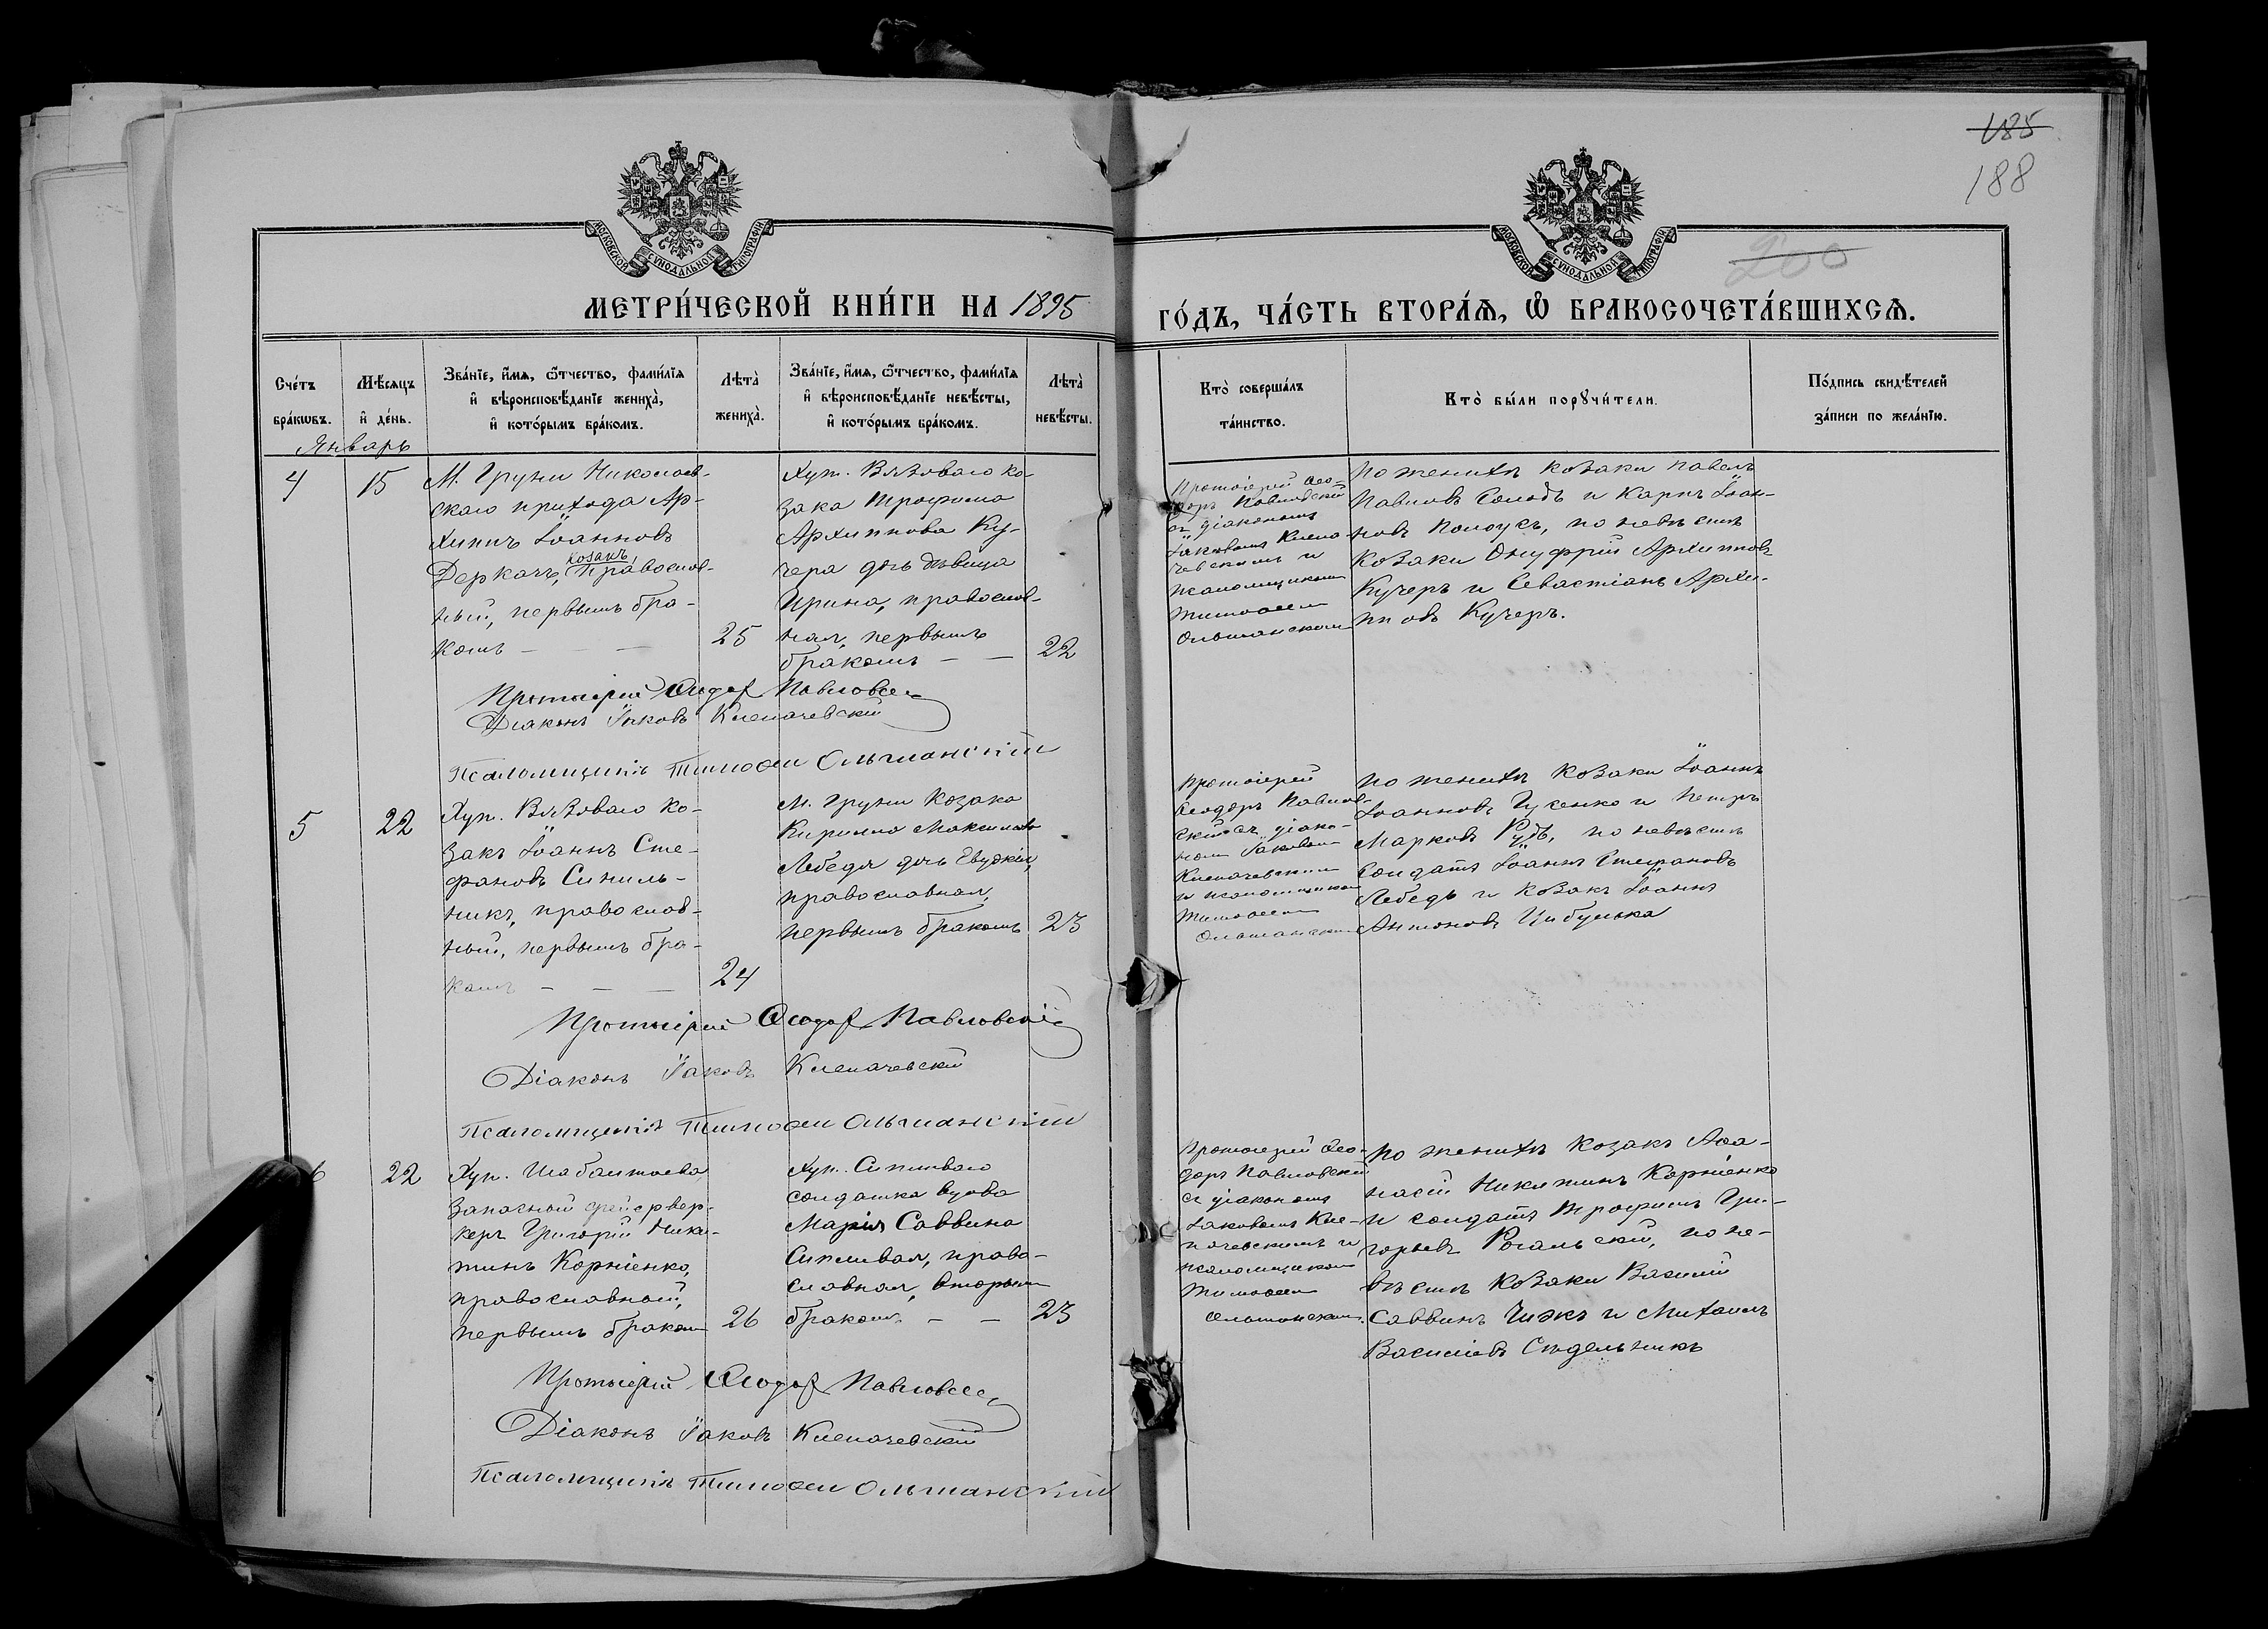 185
188
200
МОСКОВСКОЙ СУНОДАЛЬНОЙ ТИПОГРАФІИ
МОСКОВСКОЙ СУНОДАЛЬНОЙ ТИПОГРАФІИ
МЕТРИ́ЧЕСКОЙ КНИ́ГИ НА 1895
ГО́ДЪ, ЧА́СТЬ ВТОРА́Ѧ, Ѡ҆ БРАКОСОЧЕТА́ВШИХСѦ.
Сче́тъ
бра́кѡвъ.
Мѣ́сѧцъ
и҆ де́нь.
Зва́нїе, и҆́мѧ, ѻ҆́тчество, фами́лїѧ
и҆ вѣроисповѣ́данїе жениха̀,
и҆ кото́рымъ бра́комъ.
Лѣта̀
жениха̀.
Зва́нїе, и҆́мѧ, ѻ҆́тчество, фами́лїѧ
и҆ вѣроисповѣ́данїе невѣ́сты,
и҆ кото́рымъ бра́комъ.
Лѣта̀
невѣ́сты.
Кто̀ соверша́лъ
та́инство.
Кто̀ бы́ли порꙋчи́тели.
По́дпись свидѣ́телей
за́писи по жела́нїю.
Январь
4
15
М. Груни Николаев-
скаго прихода Ар-
хипъ Іоанновъ
козакъ,
Деркачъ, православ-
ный, первымъ бра-
комъ — — —
25
Хут. Вязоваго ко-
зака Трофима
Архиппова Ку-
чера дочь дѣвица
Ирина, православ-
ная, первымъ
бракомъ — —
22
Протоіерей Ѳео-
доръ Павловскій
съ діакономъ
Іаковомъ Клепа-
чевскимъ и
псаломщикомъ
Тимоѳеемъ
Ольшанскимъ
По женихѣ козаки Павелъ
Павловъ Солодъ и Карпъ Іоан-
новъ Полоусъ, по невѣстѣ
козаки Онуфрій Архипповъ
Кучеръ и Севастіанъ Архи-
пповъ Кучеръ.
Протоіерей Ѳеодоръ Павловскій
Діаконъ Іаковъ Клепачевскій
Псаломщикъ Тимоѳей Ольшанскій
5
22
Хут. Вязоваго ко-
закъ Іоаннъ Сте-
фановъ Синиль-
никъ, православ-
ный, первымъ бра-
комъ — — —
24
М. Груни козака
Кирилла Максимова
Лебедя дочь Евдокія,
православная,
первымъ бракомъ
23
Протоіерей
Ѳеодоръ Павлов-
скій съ діако-
номъ Іаковомъ
Клепачевскимъ
и псаломщикомъ
Тимоѳеемъ
Ольшанскимъ
По женихѣ козаки Іоаннъ
Іоанновъ Гусенко и Петръ
Марковъ Рудь, по невѣстѣ
солдатъ Іоаннъ Стефановъ
Лебедь и козакъ Іоаннъ
Антоновъ Цибулька
Протоіерей Ѳеодоръ Павловскій
Діаконъ Іаковъ Клепачевскій
Псаломщикъ Тимоѳей Ольшанскій
6
22
Хут.
запасный фейервер-
керъ Григорій Ники-
тинъ Корніенко,
православный,
первымъ бракомъ
26
Хут.
солдатка вдова
Марія Саввина
право-
славная, вторымъ
бракомъ — —
23
Протоіерей Ѳео-
доръ Павловскій
съ діакономъ
Іаковомъ Кле-
пачевскимъ и
псаломщикомъ
Тимоѳеемъ
Ольшанскимъ.
По женихѣ козакъ Аѳа-
насій Никитинъ Корніенко
и солдатъ Трофимъ Гри-
горьевъ Рогальскій, по не-
вѣстѣ козаки Василій
Саввинъ Чижъ и Михаилъ
Василіевъ Сѣдельникъ
Протоіерей Ѳеодоръ Павловскій
Діаконъ Іаковъ Клепачевскій
Псаломщикъ Тимоѳей Ольшанскій